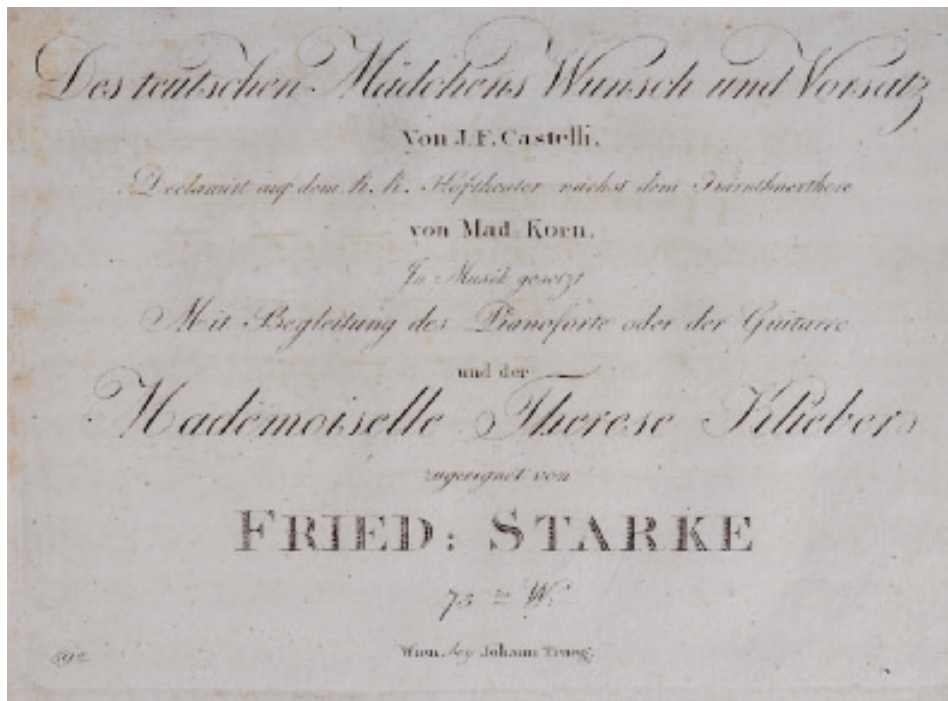 Des teutschen Mädchens Wunsch und Vorsatz
Von J.F. Castelli.
Declamirt auf dem k. k. Hoftheater nächst dem Kärnthnerthore
von Mad. Korn.
In Musik gesetzt
Mit Begleitung des Pianoforte oder der Guitarre
und der
Mademoiselle Therese Klieber
zugeeignet von
FRIED: STARKE
75 W.
Wien, bey Johann Traeg.